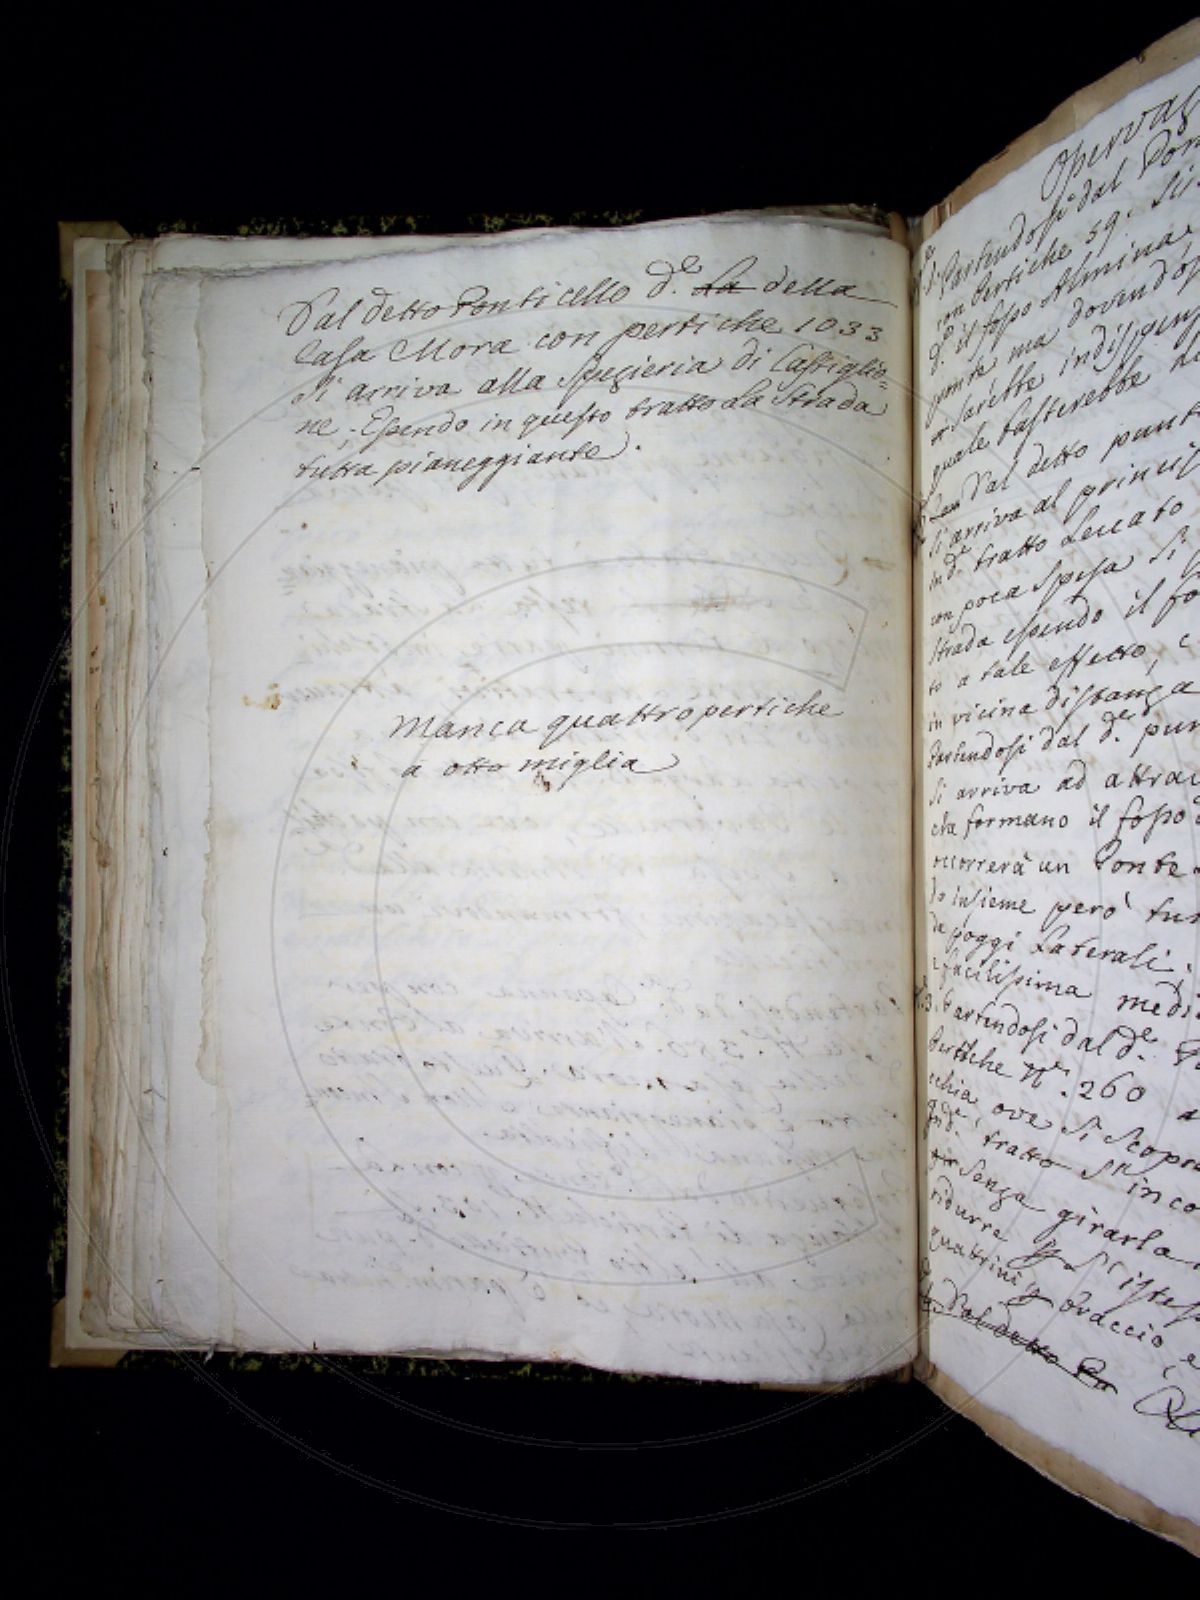 Dal detto Ponticello d.e La della
Casa Mora con pertiche 1033
si arriva alla Spezieria di Castiglio=
ne; Essendo in questo tratto La Strada
tutta pianeggiante.
Manca quattro pertiche
a otto miglia
Partendosi dal
con Pertiche 59. Si
d.o il fosso Almina
ponte ma dovendosi
sarebbe
quale basterebbe
Dal detto punto
si arriva al
in d.e tratto Leccato
con poca Spesa si
Strada essendo il
to a tale effetto,
in vicina distanza
Partendosi dal d.e
si arriva ad
che formano il fosso
occorrerà un Ponte
do insieme però
da poggi Laterali,
e facilissima
3. Partendosi dal d.e
Pertiche N.o 260 a
ecchia ove si scopre
Ind.e, tratto
Senza girarla
ridurre
quattrini Braccio
Dal detto Po